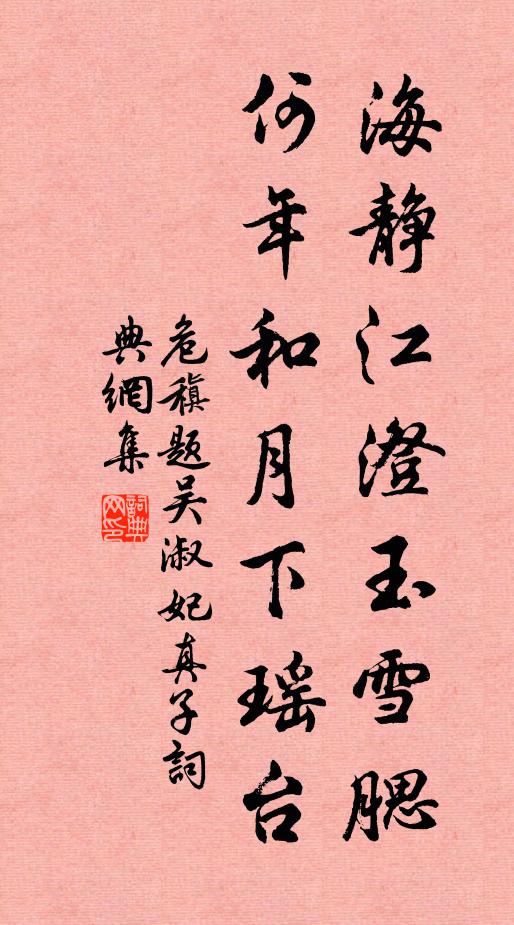 海静江澄玉雪腮
何年和月下瑶台
危稹题吴淑妃真子詞
典網集
詞典网印